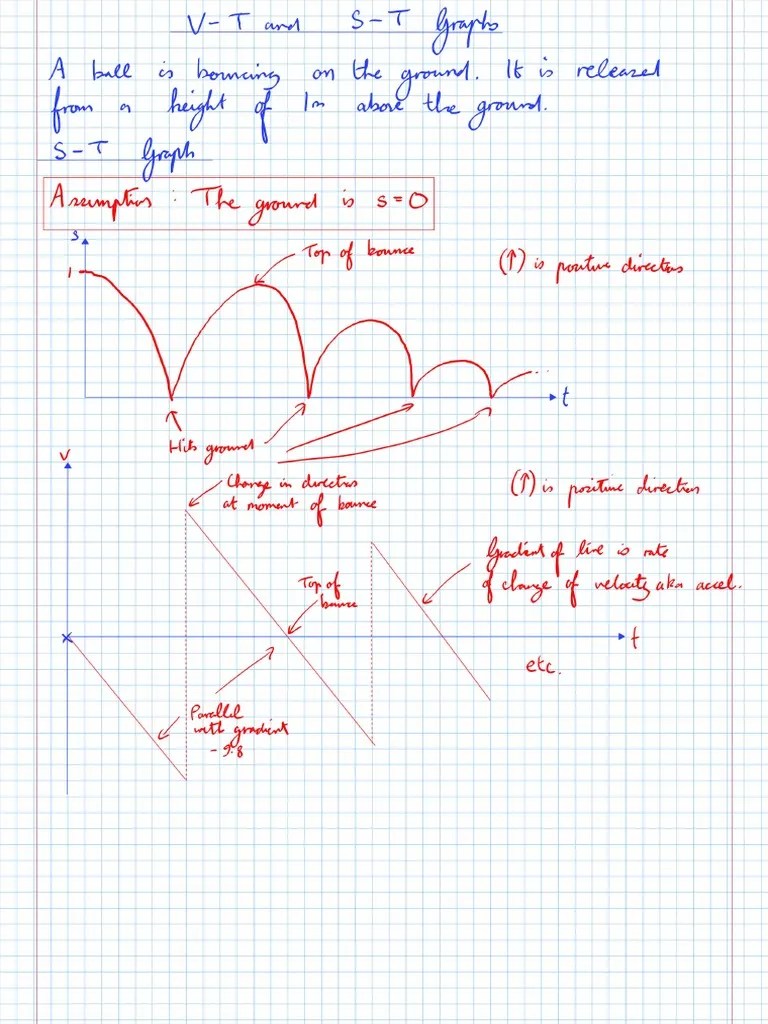 V-T and S-T Graphs
A ball is bouncing on the ground. It is released
from a height of 1m above the ground.
S-T Graph
Assumption: The ground is s=0
s
1
Top of bounce
(↑) is positive direction
t
Hits ground
v
Change in direction
at moment of bounce
(↑) is positive direction
Gradient of line is rate
of change of velocity aka accel.
Top of
bounce
t
etc.
Parallel
with gradient
-9.8